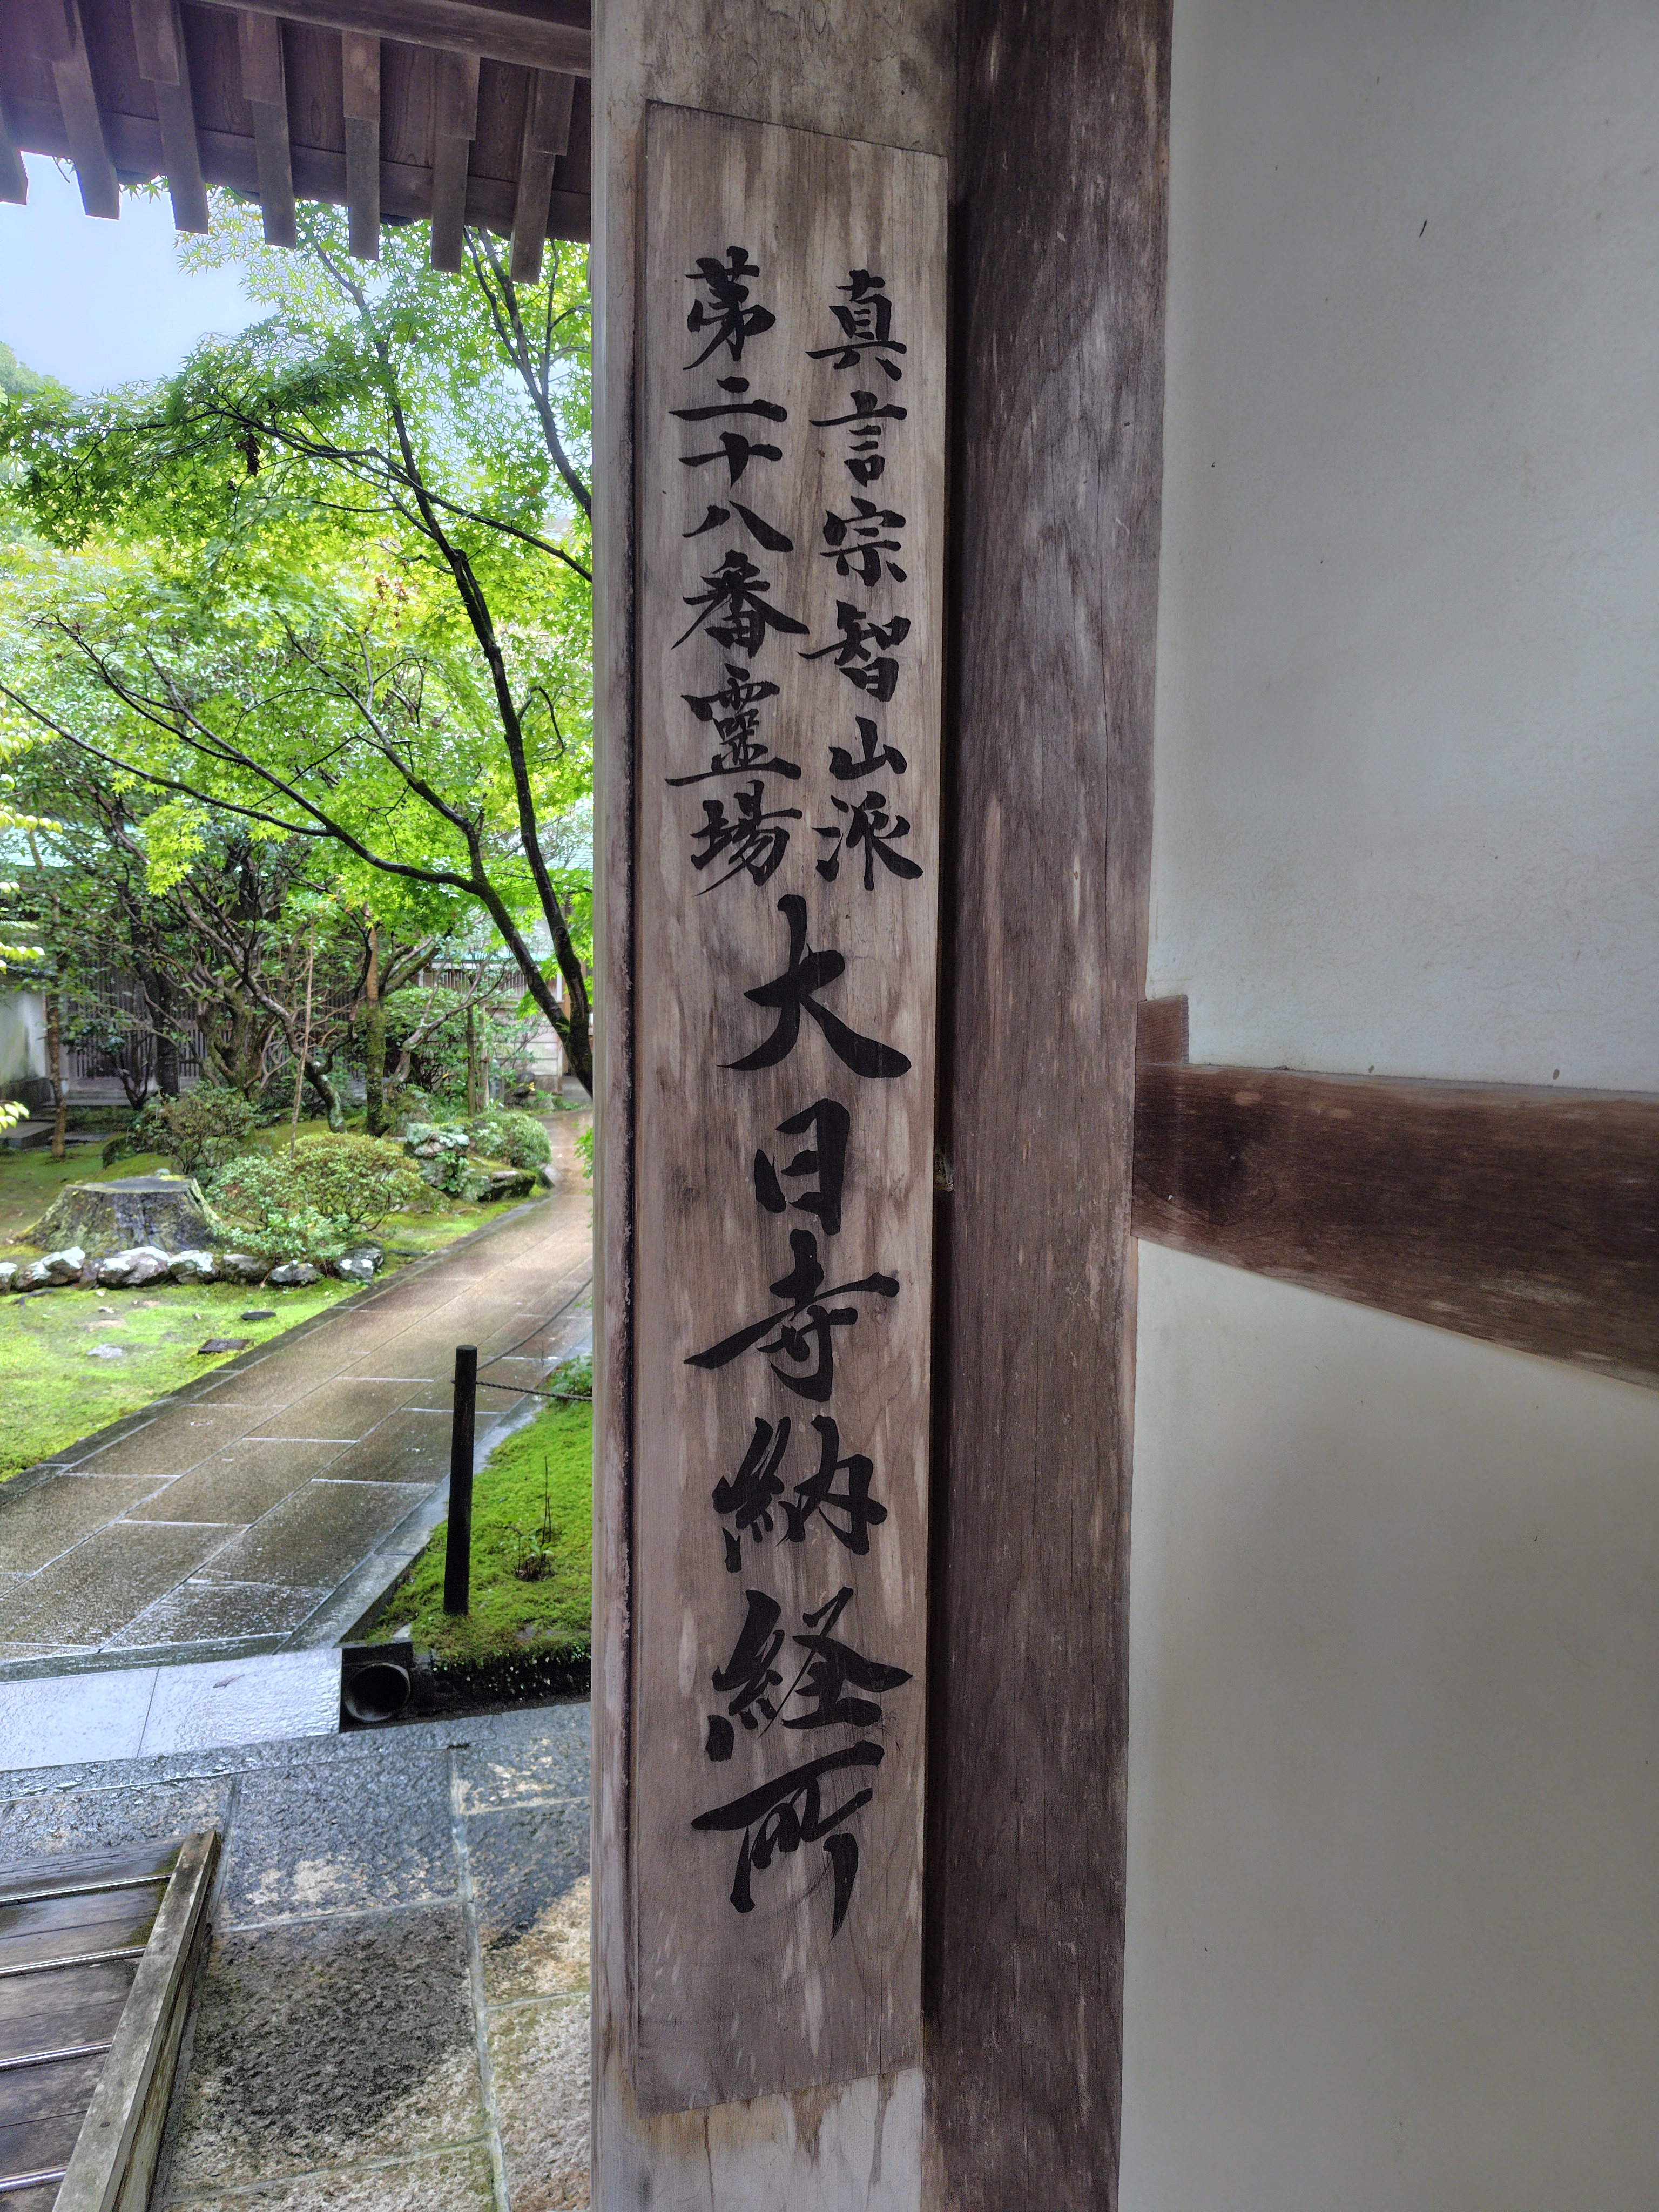 真言宗智山派
第二十八番霊場
大日寺納経所